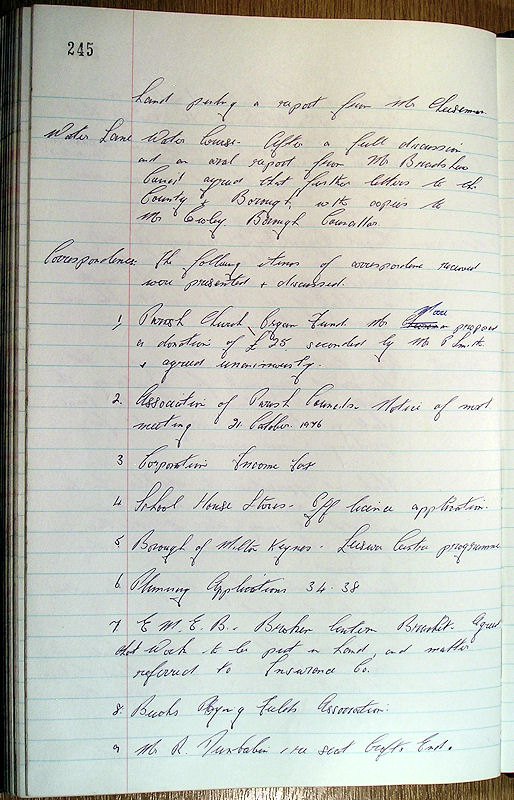 245
hand pending a report from Mr Cheeseman
Water Lane Water Course - After a full discussion
and an oral report from Mr Bradshaw
Council agreed that further letters to the
County & Borough, with copies to
Mr Borough Councillor.
Correspondence. The following items of correspondence received
were presented & discussed.
1, Parish Church Organ Fund Mr propose
a donation of £25 seconded by Mr P Smith
& agreed unanimously.
2. Association of Parish Councils - Notice of next
meeting 21 October 1976
3 Corporation Income Tax
4 School House Stores - Off licence application.
5 Borough of Milton Keynes - Leisure Centre programme
6 Planning Applications 34 - 38
7 E. M. E. B. - Broken Lantern Bracket - Agreed
that work to be put in hand, and matter
referred to Insurance Co.
8. Bucks Playing Fields Association.
9 Mr R. Dunbabin - re seat Crofts End.